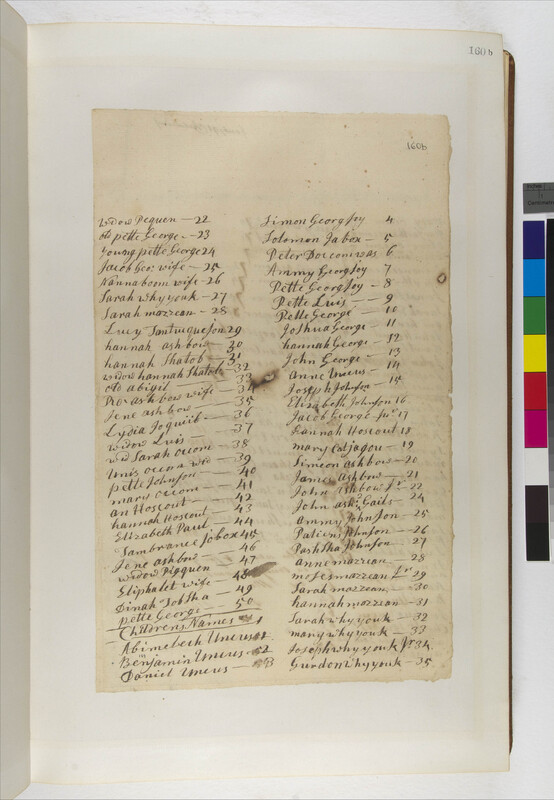 160b
160b
widow Pequen — 22
old pette George — 23
Young pette George 24
Jacob Geor wife — 25
Nannaboom wife — 26
Sarah whyyouk — 27
Sarah mazzean — 28
Lucy 29
hannah ashbow — 30
hannah Shatob — 31
widow hannah Shatob 32
old abigil — 33
ashbow wife 34
Jene ashbow — 35
Lydia Joquiib — 36
widow Luis — 37
wid Sarah occom — 38
Unis occom wid — 39
pette Johnson — 40
mary occom — 41
an Hoscout — 42
hannah Hoscout — 43
Elizabeth Paul — 44
Sambrance Jobox 45
Jene ashbow — 46
widow Pigquen — 47
Eliphalet wife — 48
Dinah JobSha — 49
pette George — 50
Childrens Names — 1
Abimelech Uncus 1
Benjamin Uncus — 2
Daniel Uncus — 3
Simon George Joy 4
Solomon Jabox — 5
Peter 6
Ammy George Joy 7
Pette George Joy — 8
Pette Luis — 9
Pette George — 10
Joshua George 11
hannah George — 12
John George — 13
anne Uncus — 14
Joseph Johnson — 15
Elizabeth Johnson 16
Jacob George Jur 17
hannah Hoscout 18
mary Catjagou — 19
Simeon ashbow — 20
James Ashbow — 21
John Ashbow Jr — 22
John Gails — 24
Ammy Johnson — 25
Patien Johnson — 26
PashSha Johnson 27
anne mazzean — 28
moses mazzean Jr 29
Sarah mazzean — 30
hannah mazzean — 31
Sarah whyyouk — 32
many whyyouk — 33
Joseph whyyouk Jr 34
Gurdon whyyouk — 35